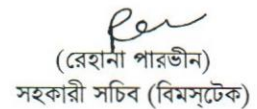 (রেহানা পারভীন)
সহকারী সচিব (বিমস্‌টেক)